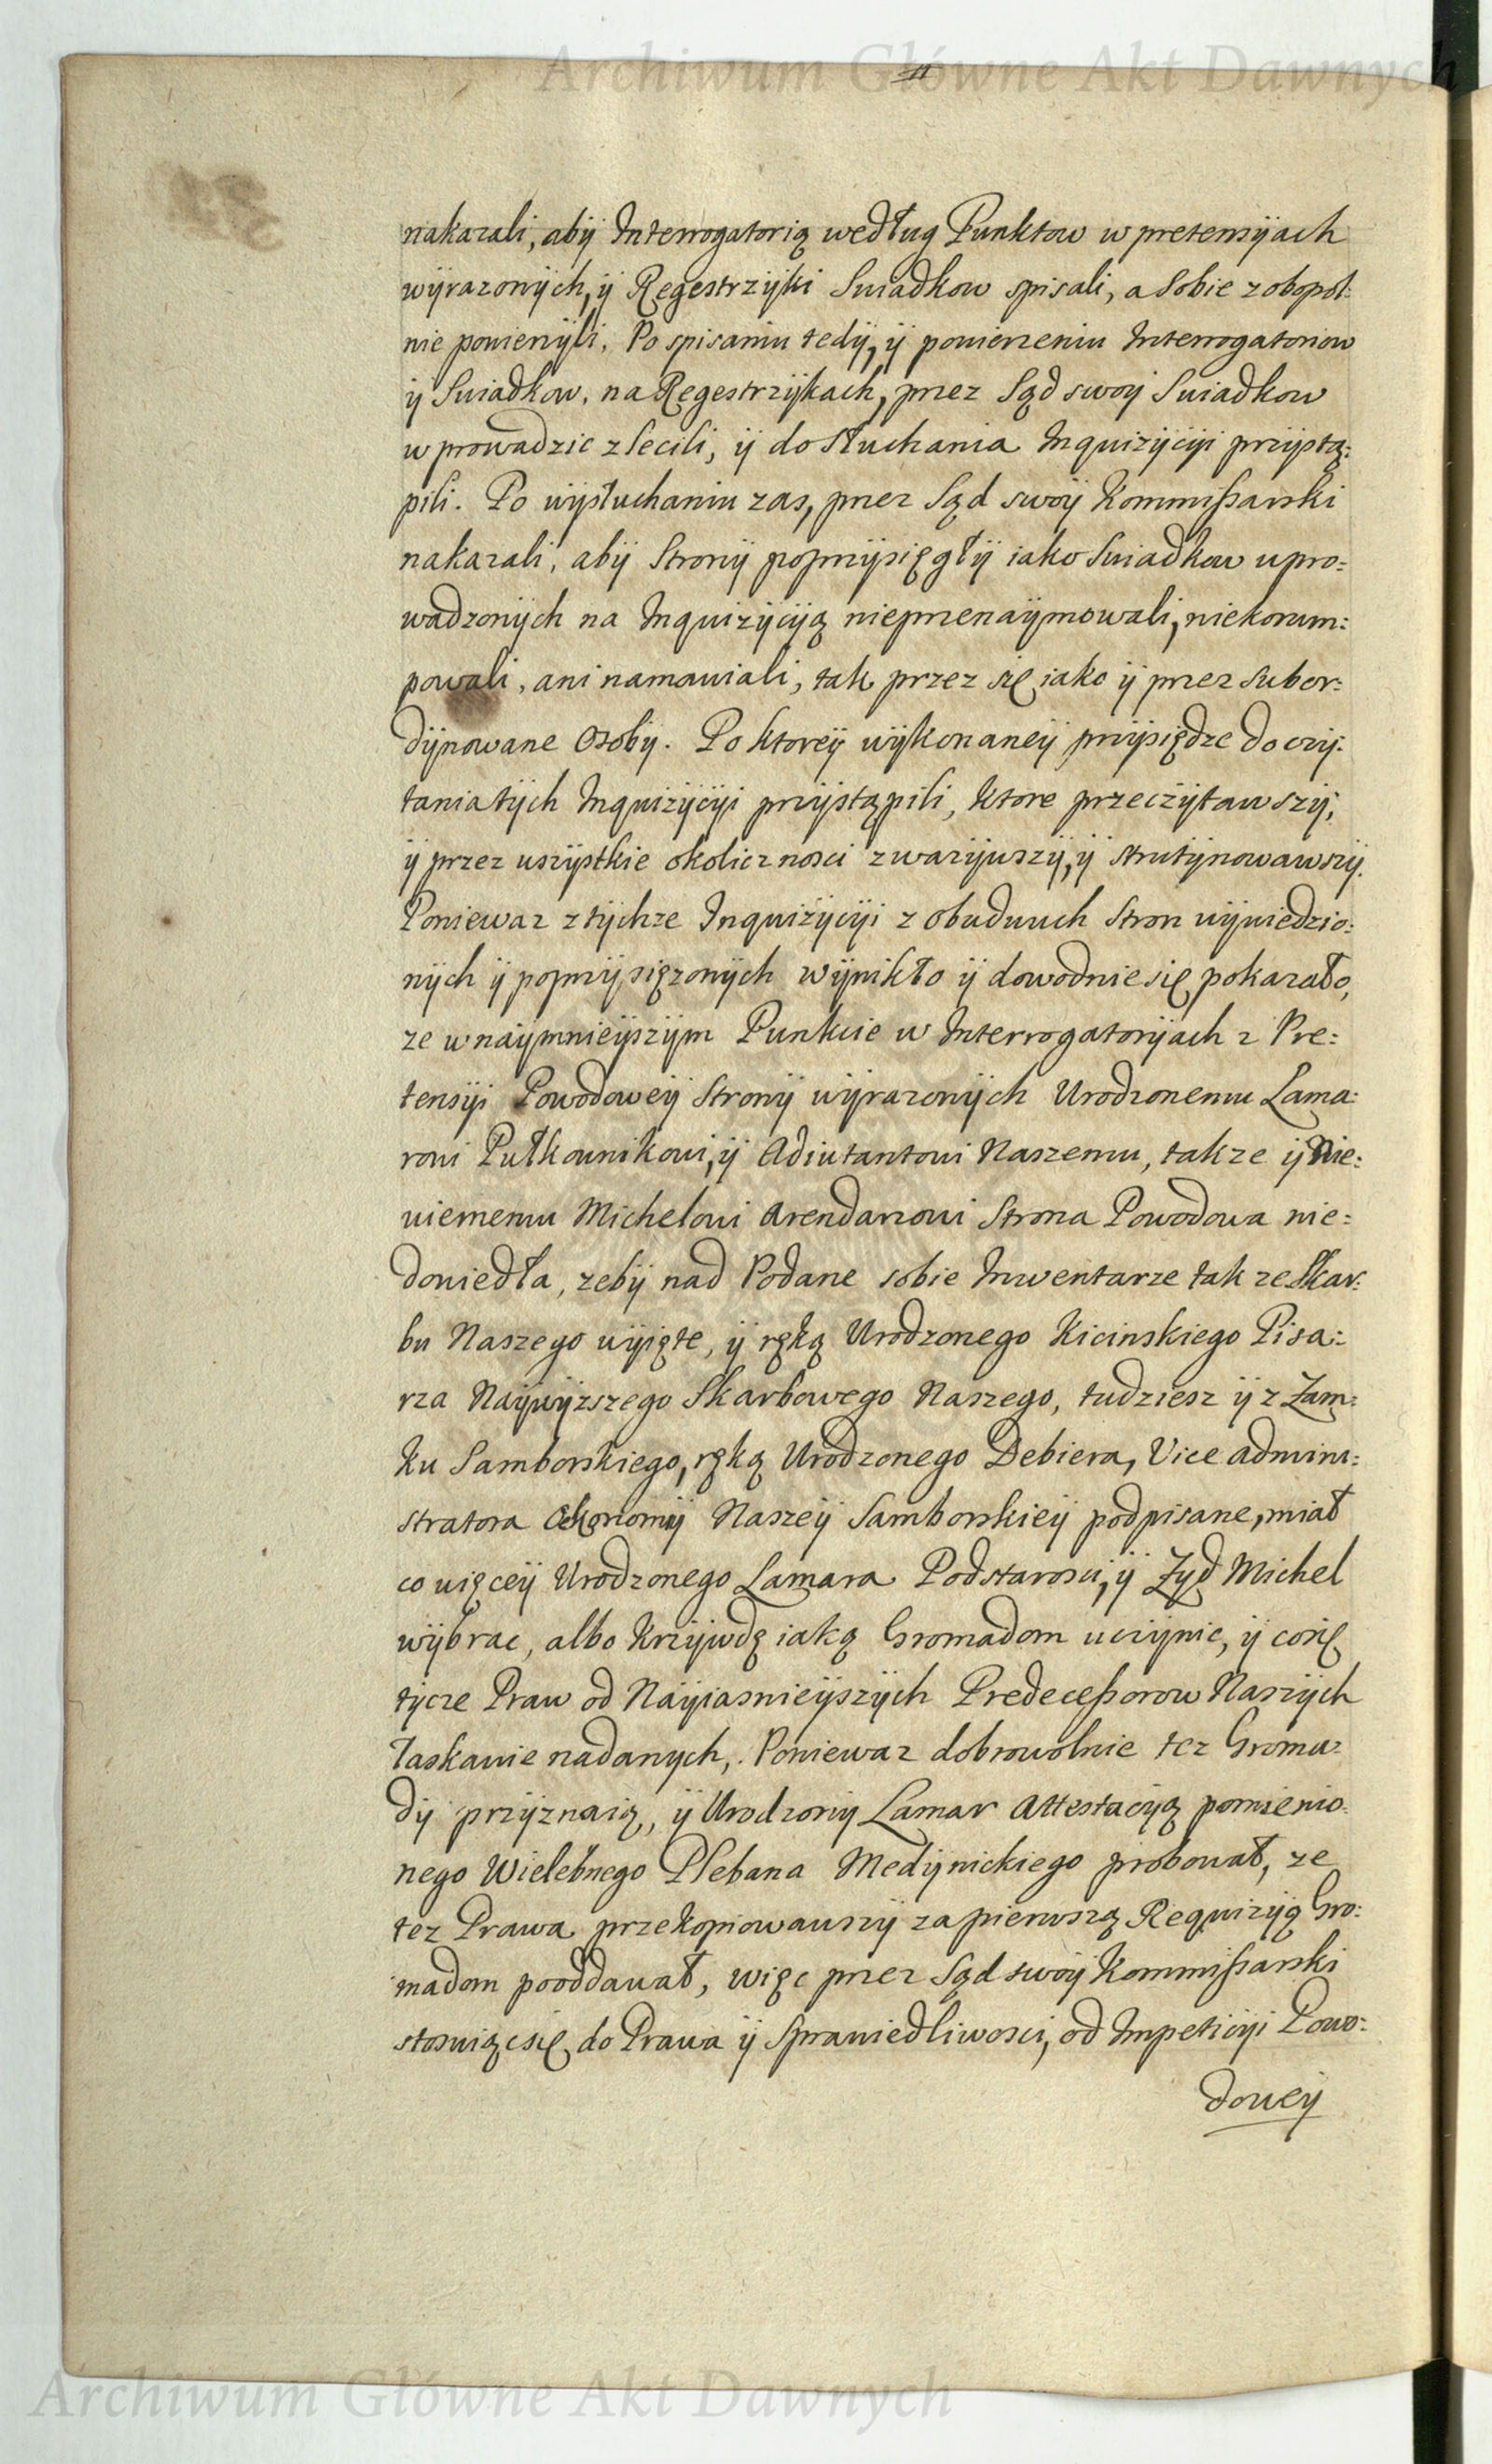 Archiwum Główne Akt Dawnych
nakazali, abÿ Interrogatorią według Punktow w pretensÿach
wÿrazonÿch, ÿ Regestrzÿki Swiadkow spisali, a sobie z obopol:
nie powierzÿli. Po spisaniu tedÿ, ÿ powierzeniu Interrogatoriow
ÿ Swiadkow, na Regestrzÿkach, przez Sąd swoÿ Swiadkow
wprowadzic zlecili, ÿ do słuchania Inquizÿcÿi przÿstą:
pili. Po wÿsłuchaniu zas, przez Sąd swoÿ Kommißarski
nakazali, abÿ Stronÿ poprzÿsięgłÿ iako Swiadkow wpro:
wadzonÿch na Inquizÿcÿą nieprzenaÿmowali, niekorum:
powali, ani namawiali, tak przez się iako ÿ przez subor:
dÿnowane Osobÿ. Po ktoreÿ wÿkonaneÿ przÿsiędze do czÿ:
tania tÿch Inquizÿcÿi przÿstąpili, ktore przeczÿtawszÿ,
ÿ przez wszÿstkie okolicznosci zwazÿwszÿ, ÿ strutÿnowawszÿ.
Poniewaz z tÿchze Inquizÿcÿi z obudwuch Stron wÿwiedzio:
nÿch ÿ poprzÿsięzonÿch wÿnikło ÿ dowodnie się pokazało,
ze w naÿmnieÿszÿm Punkcie w Interrogatorÿach z Pre:
tensÿi Powodoweÿ Stronÿ wÿrazonÿch Urodzonemu Lama:
rowi Pułkownikowi, ÿ Adiutantowi Naszemu, takze ÿ Nie:
wiernemu Michelowi Arendarzowi Strona Powodowa nie:
dowiedła, zebÿ nad Podane sobie Inwentarze tak ze Skar:
bu Naszego wÿięte, ÿ ręką Urodzonego Kicinskiego Pisa:
rza Naÿwÿzszego Skarbowego Naszego, tudziesz ÿ z Zam:
ku Samborskiego, ręką Urodzonego Debiera, Vice admini:
stratora Oekonomÿ Naszeÿ Samborskieÿ podpisane, miał
co więceÿ Urodzonego Lamara Podstarosci, ÿ Zÿd Michel
wÿbrac, albo Krzÿwdę iaką Gromadom uczÿnic, ÿ co się
tÿcze Praw od Naÿiasnieÿszÿch Predeceßorow Naszÿch
łaskawie nadanych, Poniewaz dobrowolnie tez Groma:
dÿ przÿznaią, ÿ Urodzonÿ Lamar Attestacÿą pomienio:
nego Wielebnego Plebana Medÿnickiego probował, ze
tez Prawa przekopiowawszÿ za pierwszą Requizÿą Gro:
madom pooddawał, więc przez Sąd swoÿ Kommißarski
stosuiąc się do Prawa ÿ Sprawiedliwosci, od Impeticÿi Powo:
doweÿ
Archiwum Główne Akt Dawnych